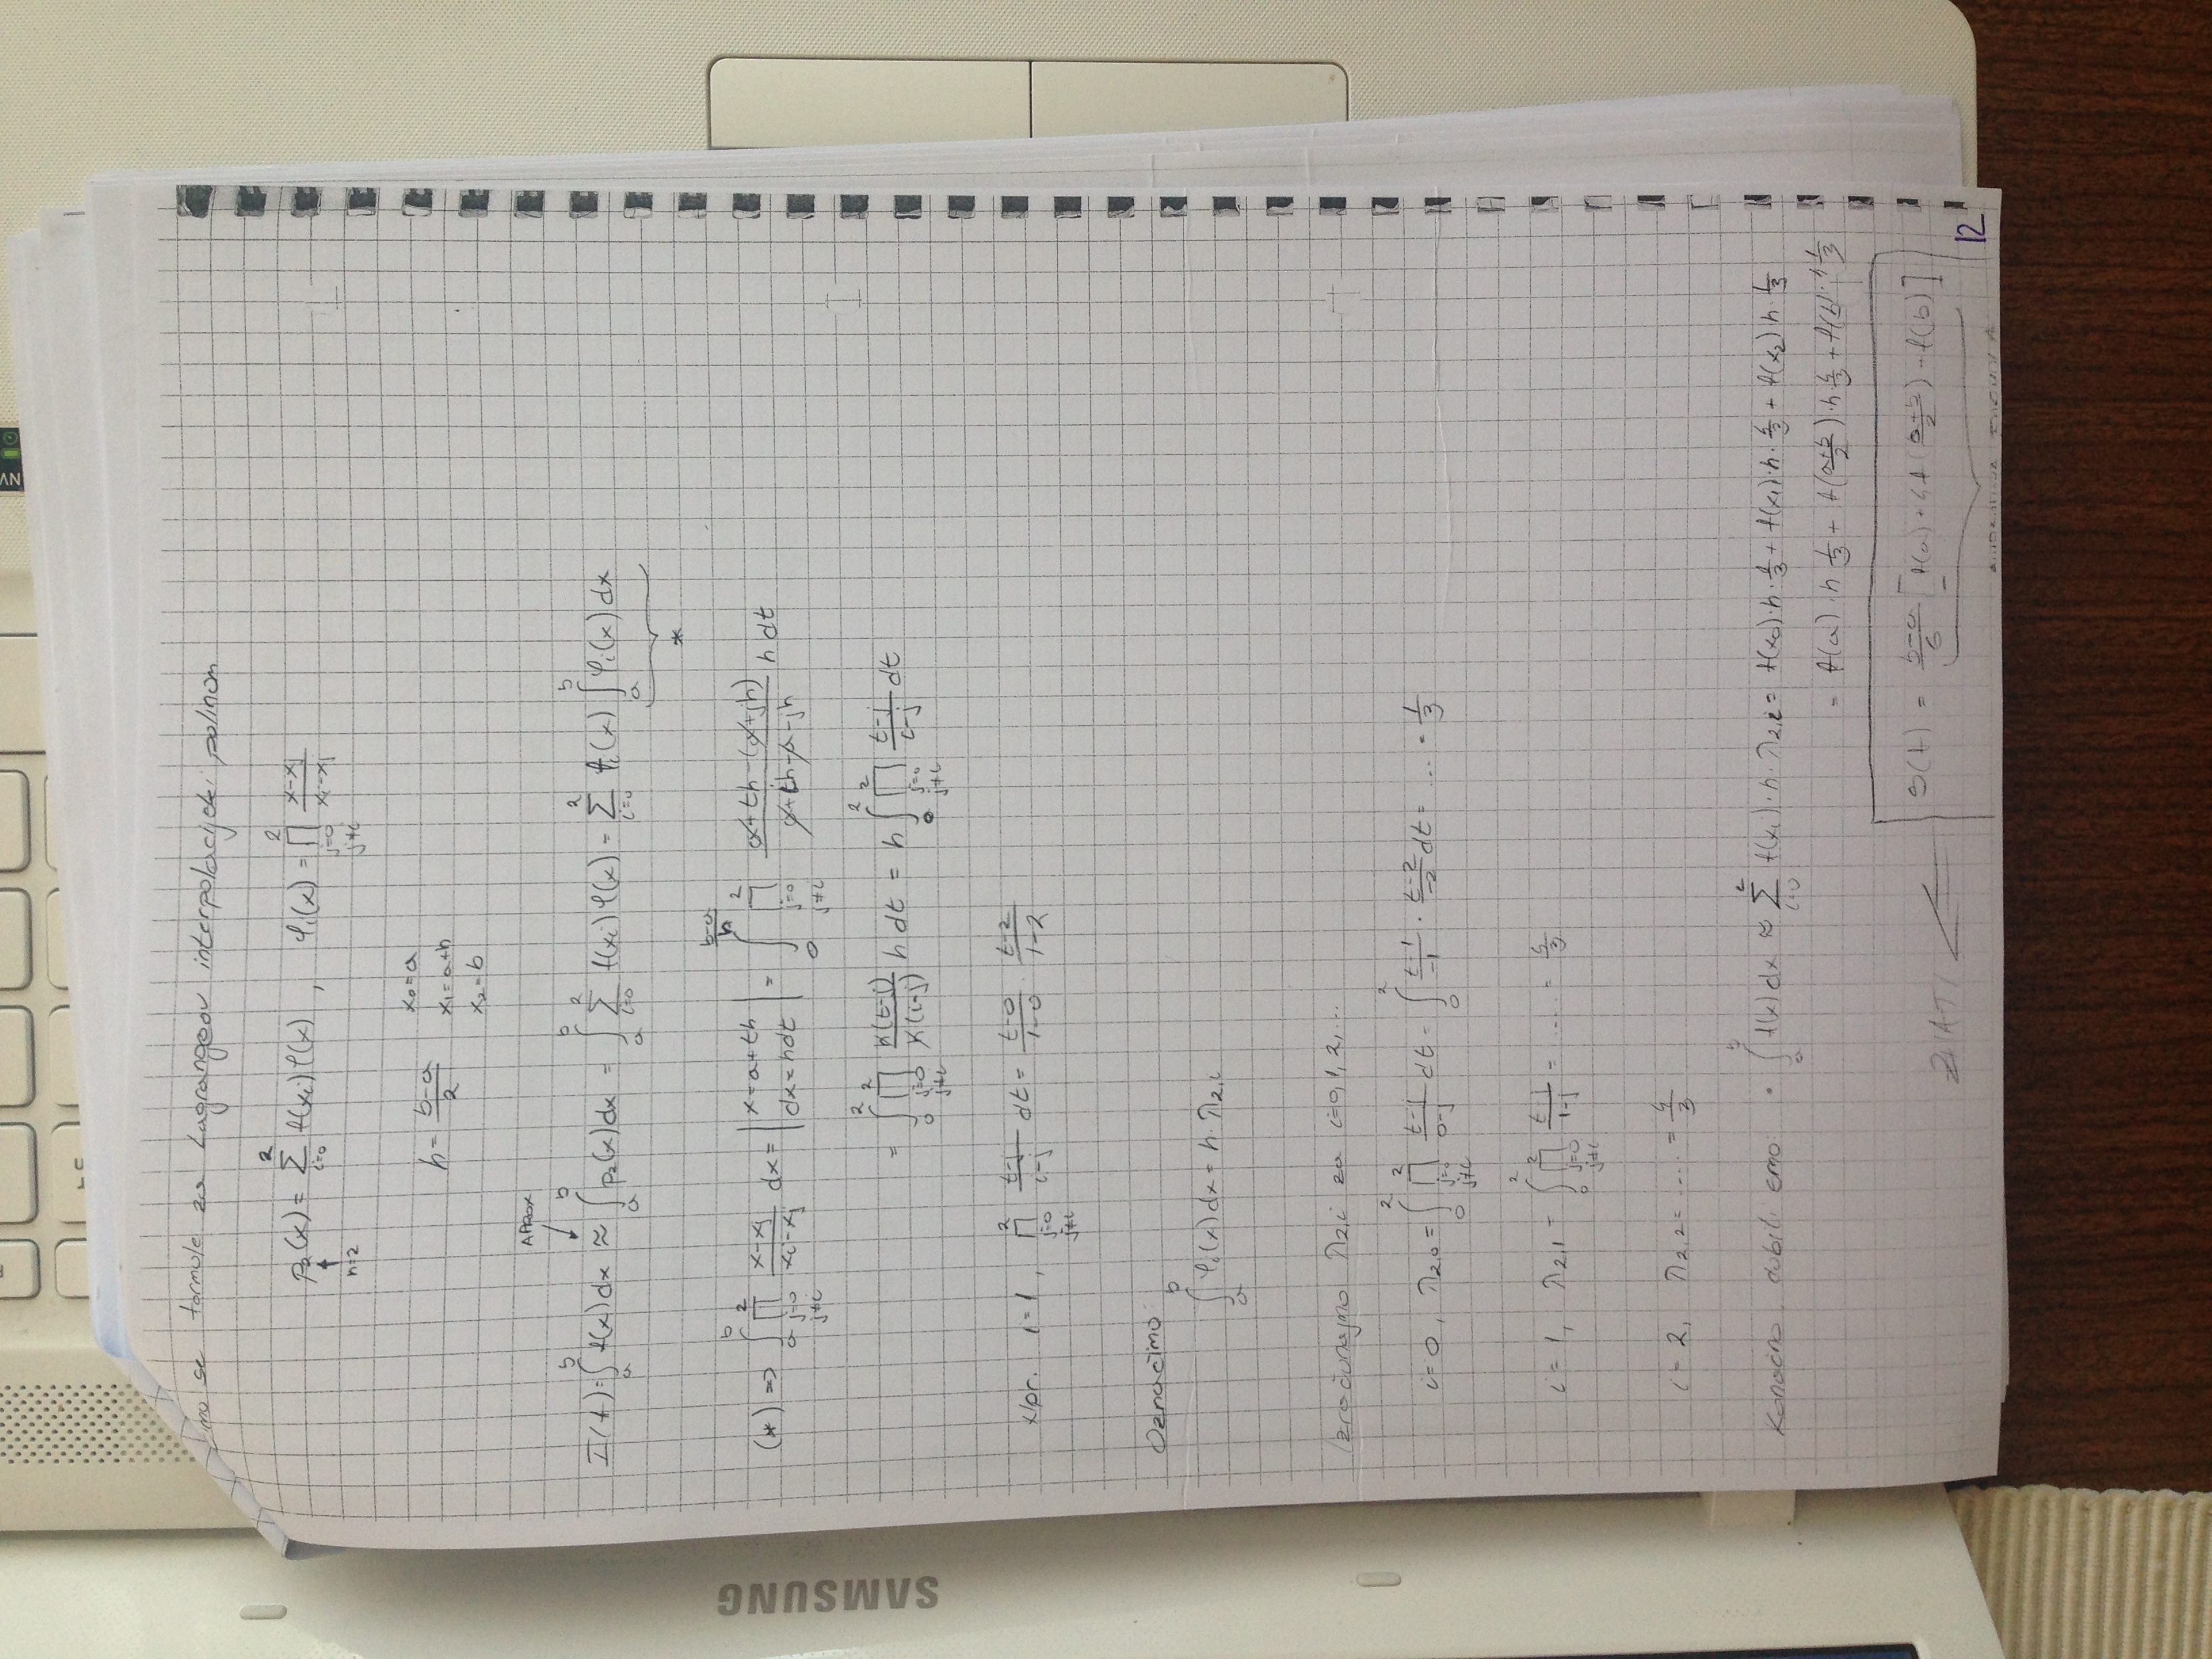 imo se formule za Lagrangeov interpolacijski polinom
p₂(x) = ∑_{i=0}^{2} f(xᵢ) φ(x) , φᵢ(x) = ∏_{j=0, j≠i}^{2} (x-xⱼ)/(xᵢ-xⱼ)
↑
n=2
h = (b-a)/2
x₀=a
x₁=a+h
x₂=b
APROX
I(f) = ∫_a^b f(x)dx ≈ ∫_a^b p₂(x)dx = ∫_a^b ∑_{i=0}^{2} f(xᵢ) φ(x) = ∑_{i=0}^{2} fᵢ(x) ∫_a^b φᵢ(x) dx
*
(*) => ∫_a^b ∏_{j=0, j≠i}^{2} (x-xⱼ)/(xᵢ-xⱼ) dx = | x=a+th dx=hdt | = ∫_0^{(b-a)/h} ∏_{j=0, j≠i}^{2} (a+th-(a+jh))/(a+ih-a-jh) h dt
= ∫_0^2 ∏_{j=0, j≠i}^{2} h(t-j)/h(i-j) h dt = h ∫_0^2 ∏_{j=0, j≠i}^{2} (t-j)/(i-j) dt
Npr. i=1, ∏_{j=0, j≠i}^{2} (t-j)/(i-j) dt = (t-0)/(1-0) · (t-2)/(1-2)
Označimo
∫_a^b φᵢ(x)dx = h·λ₂,ᵢ
Izračunajmo λ₂,ᵢ za i=0,1,2,...
i=0, λ₂,₀ = ∫_0^2 ∏_{j=0, j≠i}^{2} (t-j)/(0-j) dt = ∫_0^2 (t-1)/-1 · (t-2)/-2 dt = ... = 1/3
i=1, λ₂,₁ = ∫_0^2 ∏_{j=0, j≠i}^{2} (t-j)/(1-j) = ..... = 4/3
i=2, λ₂,₂ = ..... = 4/3
Konačno dobili smo · ∫_a^b f(x)dx ≈ ∑_{i=0}^{2} f(xᵢ)·h·λ₂,ᵢ = f(x₀)·h·1/3 + f(x₁)·h·4/3 + f(x₂)h·1/3
= f(a)·h 1/3 + f((a+b)/2)·h 4/3 + f(b)·h 1/3
ZNATI
S(f) = (b-a)/6 [f(a)+4f((a+b)/2)+f(b)]
12
SAMSUNG